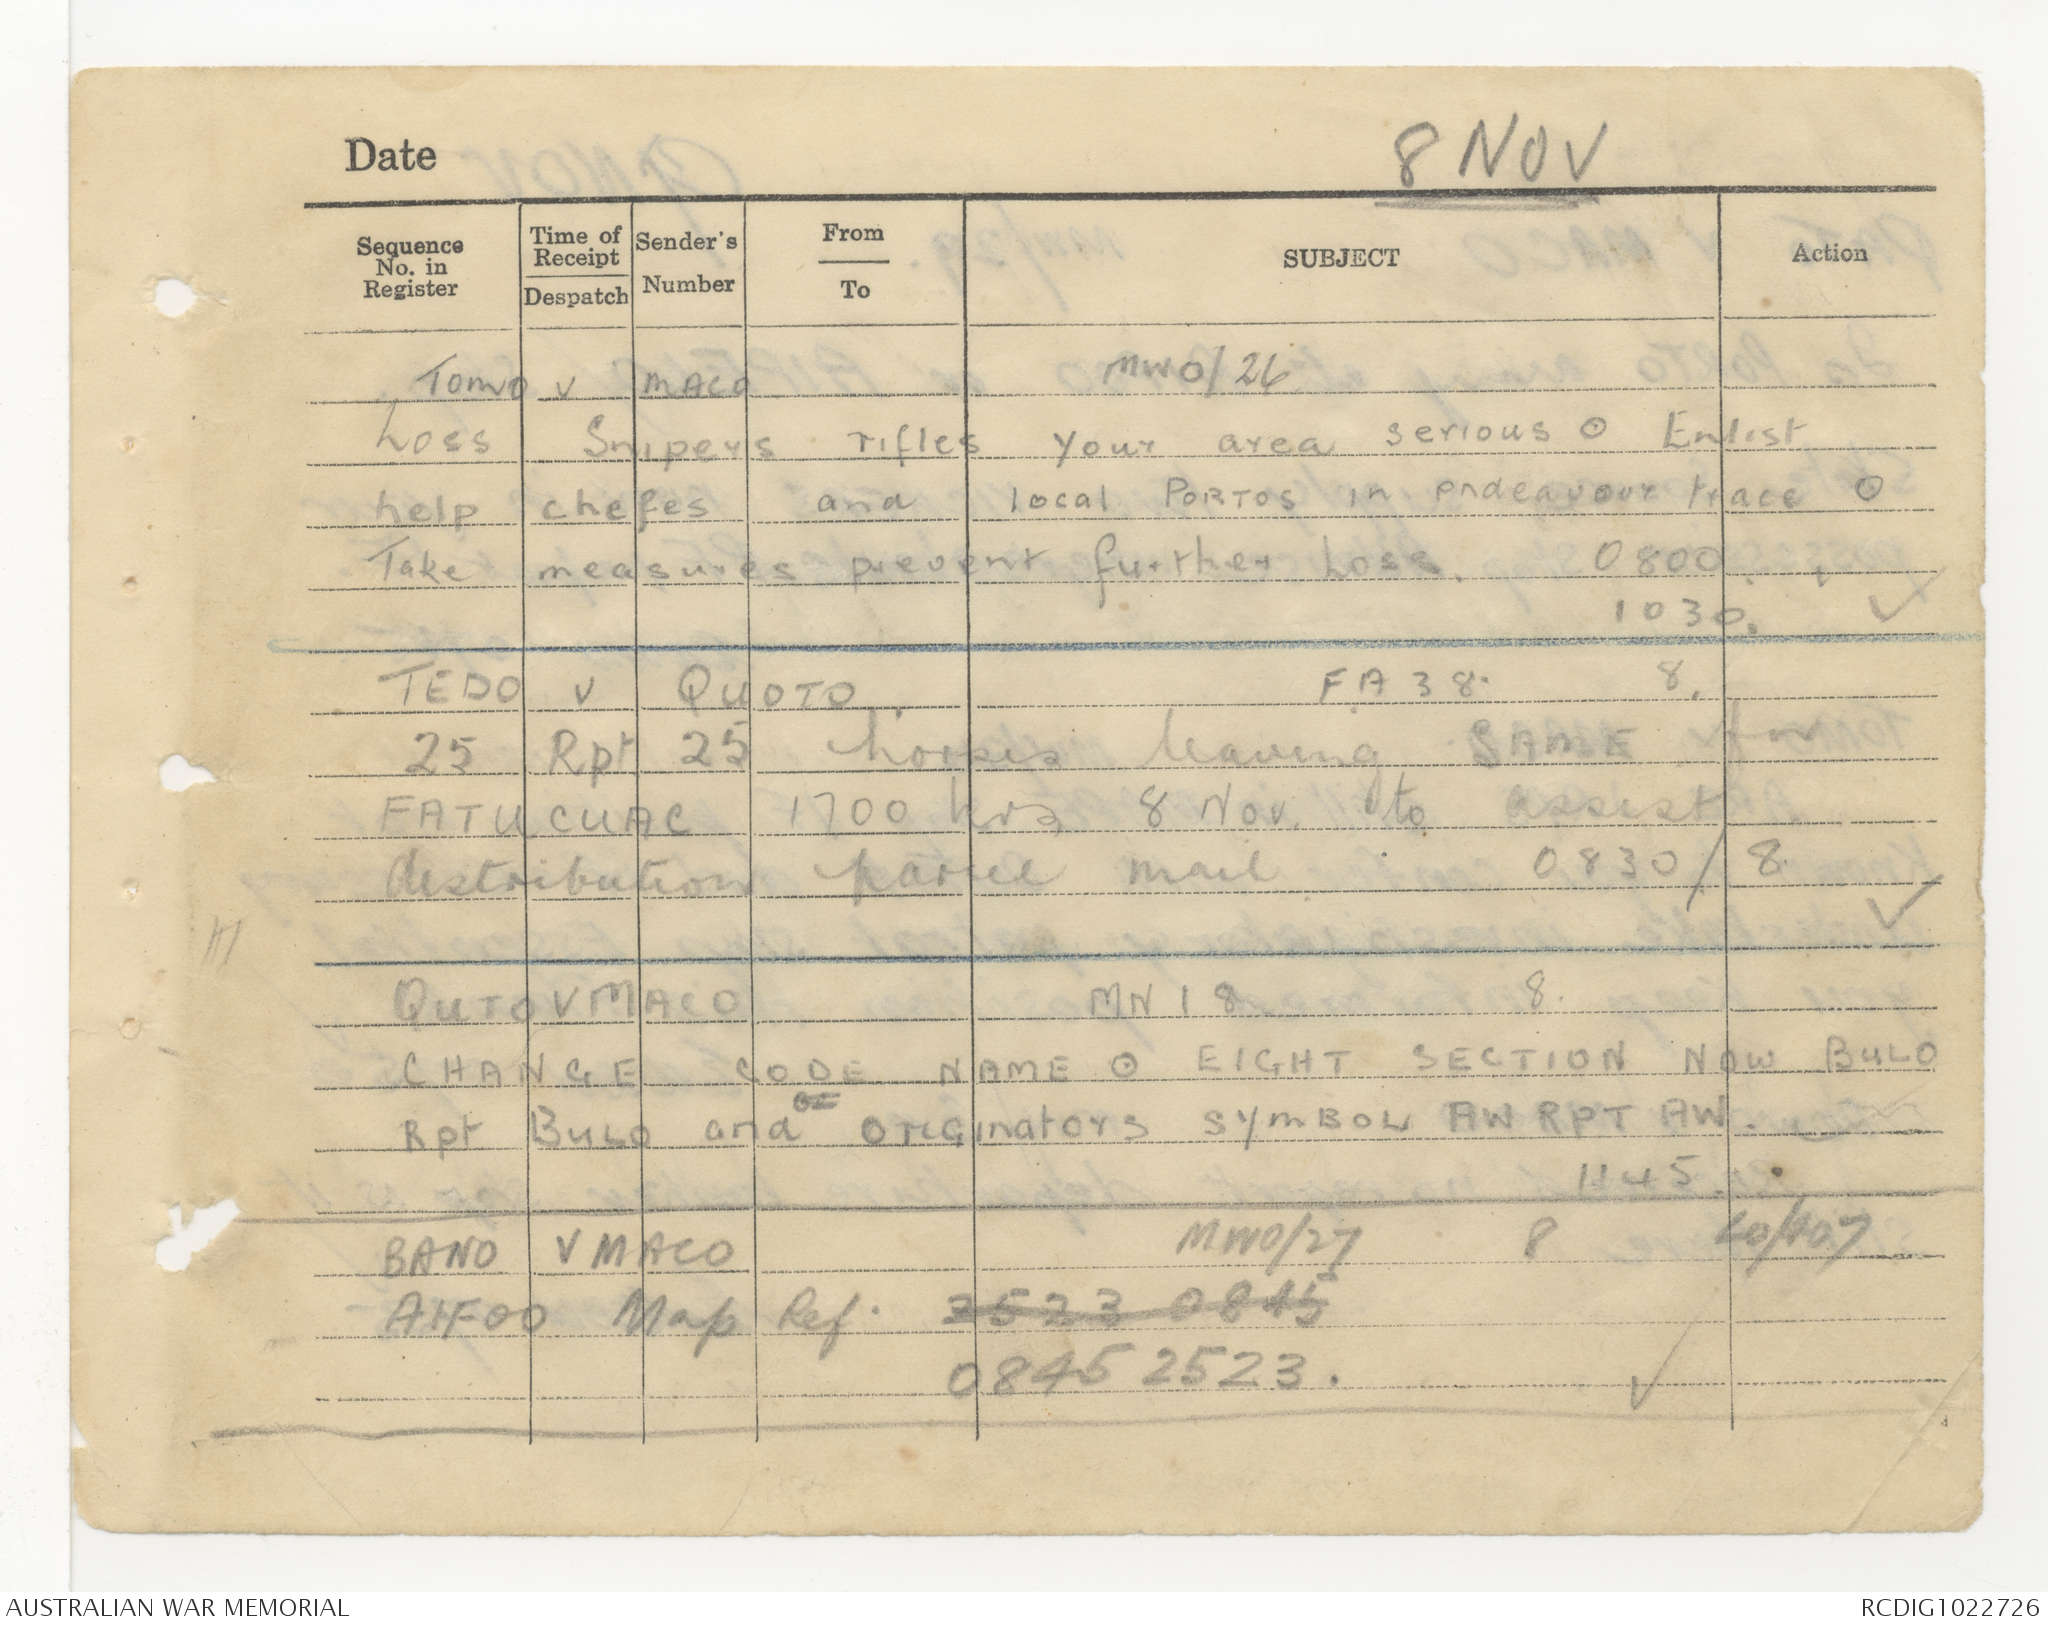 Date
8 NOV
Sequence No. in Register
Time of Receipt
Despatch
Sender's Number
From
To
SUBJECT
Action
TOMO V MACO MWO/26
Loss Snipers rifles your area serious ⊙ Enlist
help chefes and local PORTOS in endeavour trace ⊙
Take measures prevent further Loss. 0800
1030. ✓
TEDO V QUOTO. FA 38. 8.
25 Rpt 25 horses leaving SAME for
FATUCUAC 1700 hrs 8 Nov. to assist
distribution parcel mail 0830/8. ✓
QUTO V MACO MN 18 8.
CHANGE CODE NAME ⊙ EIGHT SECTION NOW BULO
Rpt BULO and ORIGinators SYMBOL AW RPT AW.
1145.
BANO V MACO MWO/27 8
Map Ref. 2523 0845
0845 2523. ✓
AUSTRALIAN WAR MEMORIAL
RCDIG1022726